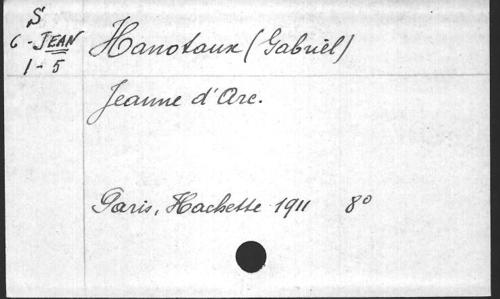 S
6-JEAN
1-5
Hanotaux (Gabriel)
Jeanne d'Arc.
Paris, Hachette 1911 8º